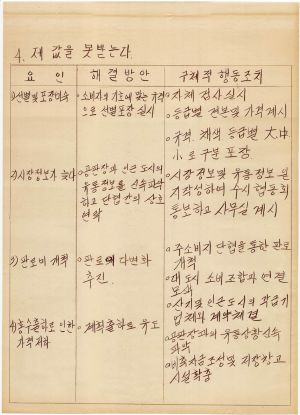 4. 제 값을 못받는다.
요 인
해결방안
구체적 행동조치
1) 선별및 포장미숙
o 소비자의 기호에 맞는 규격
으로 선별포장 실시
o 자체 검사실시
o 등급별 견본및 가격게시
o 규격, 채색 등급별 大中
小로 구분 포장
2) 시장정보가 늦다
o 공판장과 인근 도시의
유통정보를 신속파악
하고 단협간의 상호
연락
o 시장정보및 유통정보 일
지작성하여 수시 협동회
통보하고 사무실 게시
3) 판로미 개척
o 판로의 다변화
추진.
o 주소비기 단협을 통한 판로
개척
o 대도시 소비조합과 연결
모색
o 산지및 인근도시의
업체와 계약체결
4) 홍수출하로 인한
가격저하
o 계획출하로 유도
o 공판장과의 유통상황신속
파악
o 비축자금조성및 저장창고
시설확충